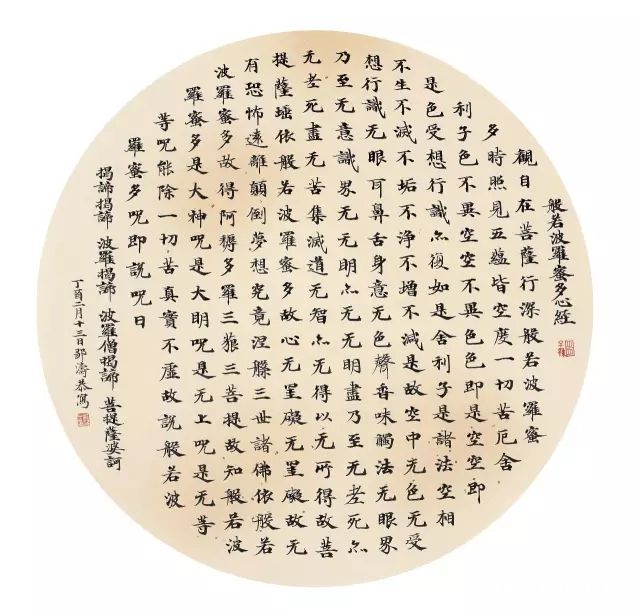 般若波羅蜜多心經
觀自在菩薩行深般若波羅蜜
多時照見五蘊皆空度一切苦厄舍
利子色不異空空不異色色即是空空即
是色受想行識亦復如是舍利子是諸法空相
不生不滅不垢不淨不增不減是故空中无色无受
想行識无眼耳鼻舌身意无色聲香味觸法无眼界
乃至无意識界无无明亦无无明盡乃至无老死亦
无老死盡无苦集滅道无智亦无得以无所得故菩
提薩埵依般若波羅蜜多故心无罣礙无罣礙故无
有恐怖遠離顛倒夢想究竟涅槃三世諸佛依般若
波羅蜜多故得阿耨多羅三藐三菩提故知般若波
羅蜜多是大神呪是大明呪是无上呪是无等
等呪能除一切苦真實不虛故說般若波
羅蜜多呪即說呪曰
揭諦揭諦 波羅揭諦 波羅僧揭諦 菩提薩婆訶
丁酉二月十三日邵濤恭寫